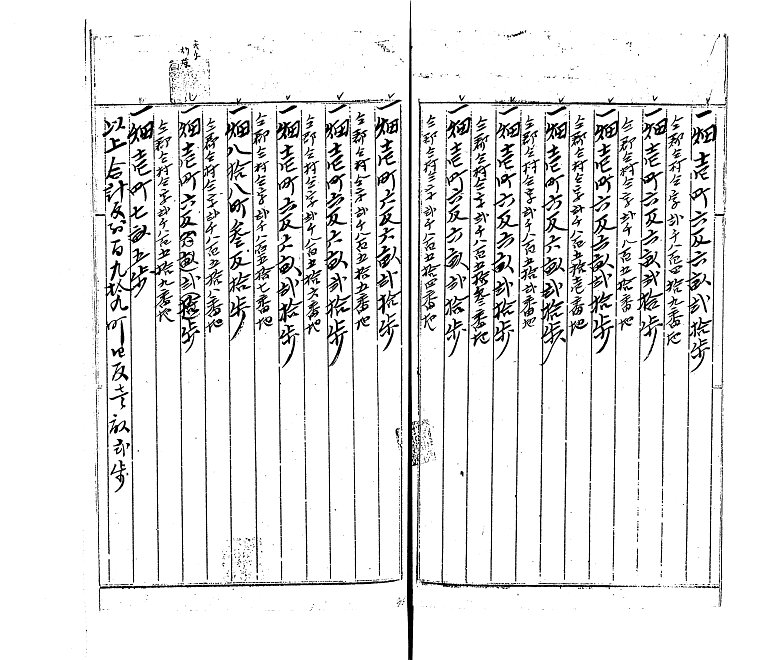 一畑壱町六反六畝弐拾歩
仝郡仝村仝字弐千八百四拾九番地
一畑壱町六反六畝弐拾歩
仝郡仝村仝字弐千八百五拾番地
一畑壱町六反六畝弐拾歩
仝郡仝村仝字弐千八百五拾壱番地
一畑壱町六反六畝弐拾歩
仝郡仝村仝字弐千八百五拾弐番地
一畑壱町六反六畝弐拾歩
仝郡仝村仝字弐千八百五拾参番地
一畑壱町六反六畝弐拾歩
仝郡仝村仝字弐千八百五拾四番地
一畑壱町六反六畝弐拾歩
仝郡仝村仝字弐千八百五拾五番地
一畑壱町六反六畝弐拾歩
仝郡仝村仝字弐千八百五拾六番地
一畑壱町六反六畝弐拾歩
仝郡仝村仝字弐千八百五拾七番地
一畑八拾八町参反拾歩
仝郡仝村仝字弐千八百五拾八番地
一畑壱町六反六畝弐拾歩
仝郡仝村仝字弐千八百五拾九番地
一畑壱町七畝五歩
以上合計反別百九拾九町四反壱畝弐歩